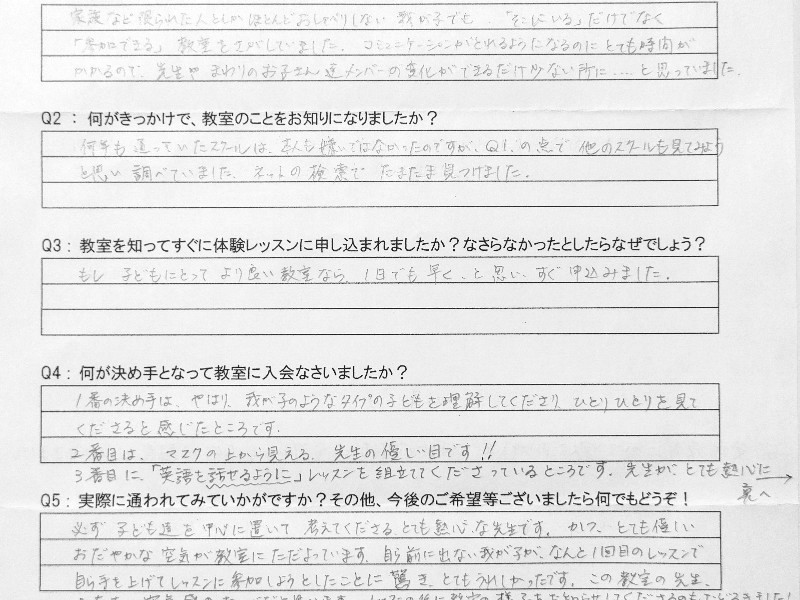 家族など限られた人としかほとんどおしゃべりしない我が子でも、「そこにいる」だけでなく
「参加できる」教室をさがしていました。コミュニケーションがとれるようになるのにとても時間が
かかるので、先生やまわりのお子さん達メンバーの変化ができるだけ少ない所に....と思っていました。
Q2 : 何がきっかけで、教室のことをお知りになりましたか？
何年も通っていたスクールは、本人も嫌いではなかったのですが、Q1.の点で他のスクールも見てみよう
と思い調べていました。ネットの検索でたまたま見つけました。
Q3 : 教室を知ってすぐに体験レッスンに申し込まれましたか？なさらなかったとしたらなぜでしょう？
もし子どもにとってより良い教室なら、1日でも早く、と思い、すぐ申込みました。
Q4 : 何が決め手となって教室に入会なさいましたか？
1番の決め手は、やはり、我が子のようなタイプの子どもを理解してくださり、ひとりひとりを見て
くださると感じたところです。
2番目は、マスクの上から見える、先生の優しい目です!!
3番目に、「英語を話せるように」レッスンを組立ててくださっているところです。先生がとても熱心に
裏へ
Q5 : 実際に通われてみていかがですか？その他、今後のご希望等ございましたら何でもどうぞ！
必ず子ども達を中心に置いて考えてくださる、とても熱心な先生です。かつ、とても優しい
おだやかな空気が教室にただよっています。自ら前に出ない我が子が、なんと1回目のレッスンで
自ら手を上げてレッスンに参加しようとしたことに驚き、とてもうれしかったです。この教室の先生、